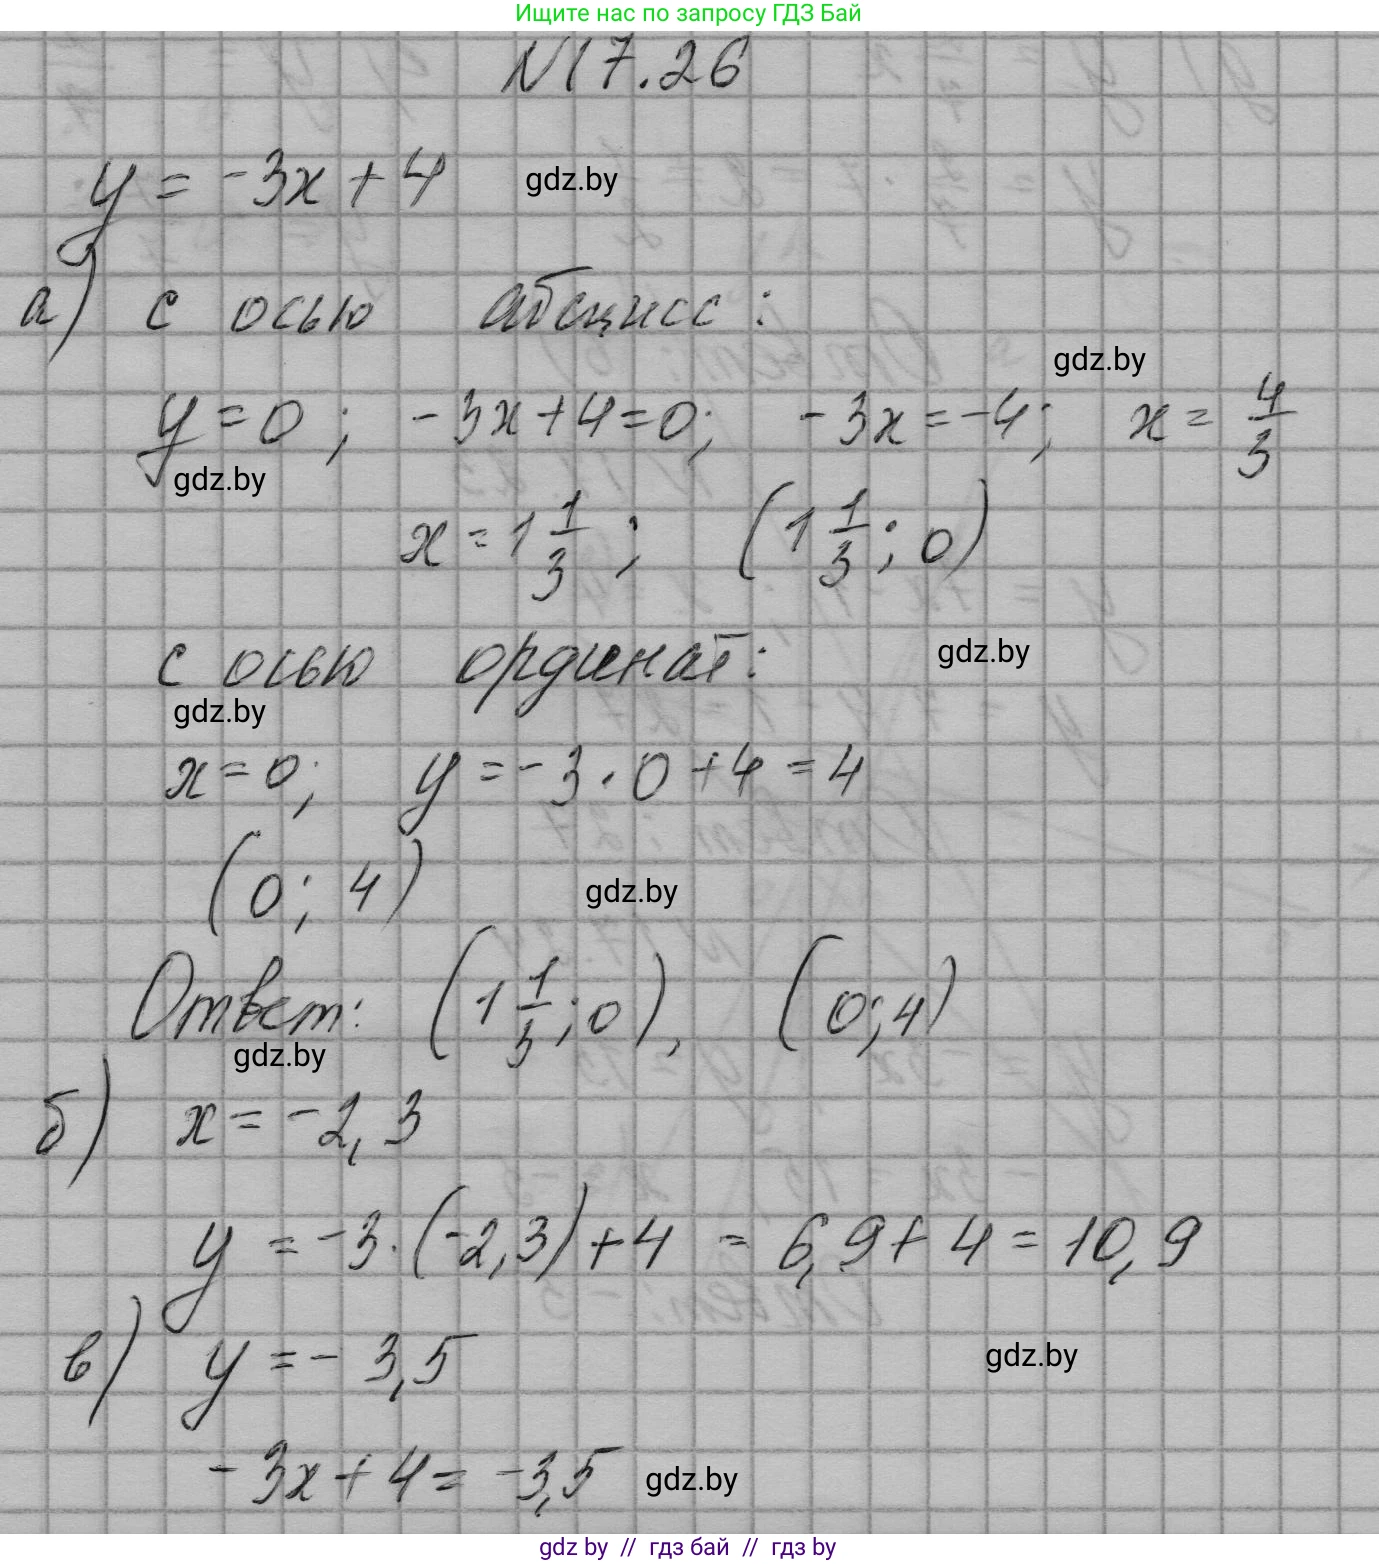 Ищите нас по запросу ГДЗ Бай
N17.26
y = -3x + 4
gdz.by
а) с осью абсцисс:
gdz.by
y = 0; -3x + 4 = 0; -3x = -4; x = 4/3
gdz.by
x = 1 1/3; (1 1/3; 0)
с осью ординат:
gdz.by
gdz.by
x = 0; y = -3 · 0 + 4 = 4
(0; 4)
gdz.by
Ответ: (1 1/3; 0), (0; 4)
gdz.by
б) x = -2,3
y = -3 · (-2,3) + 4 = 6,9 + 4 = 10,9
в) y = -3,5
gdz.by
-3x + 4 = -3,5
gdz.by
gdz by // гдз бай // гдз by